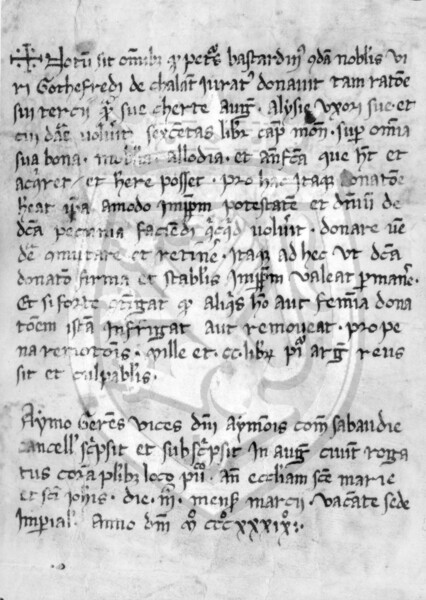 ✠ Notū sit om̄ibꝫ qƺ pet᷒s bastardin᷒ qdā nobilis vi
ri Gothefredi de chalant iurat᷒ donauit tam ratōe
sui tercii qƺ sue cherte aug̅ · alysie vxori sue · et
cui dāe uolūit · sexcētas libr̅ cap̅ mōn · sup om̄ia
sua bona · mobilia allodia · et anfc̄a que h̅t et
acq̅ret / et h̅ere posset · pro hac itaqƺ donatōe
heat ip̅a amodo imp̅m potestatē et dn̅iū de
dc̄a pecunia faciēdi qcqd uolūit · donare uē
de̅ cmutare et retine̅ · itaqƺ ad hec ut dc̄a
donato̅ firma et stabl̅is imp̅m valeat p̱mane̅ ·
Et si forte c̅tigat qƺ aliq̅s ho̅ aut femīa dona
to̅em istā infrigat aut remoueat · pro pe
na remoto̅is · Mille et · cc · libr̅ p̅i arg̅ reus
sit et culpabl̅is ·
Aymo Geren̅s vices dn̅i aymo̅is com̅ sabaudie
cancell̅ sc̅psit et subsc̅psit in aug̅ ciuit̅ roga
tus corā pl̅ibꝫ loco p̅ · an̅ eccl̅iam sc̅e marie
et sc̅i ioh̅is · die · iii · mens̅ marcii · vacāte sede
imperial̅ · anno dn̅i mº cccº xxxixº ·